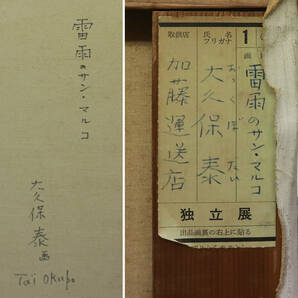 雷雨のサン・マルコ
大久保 泰 画
Tai Okubo
取扱店
加藤運送店
氏名
フリガナ
おおくぼ たい
大久保 泰
1
画
雷雨のサン・マルコ
独立展
出品画裏の右上に貼る